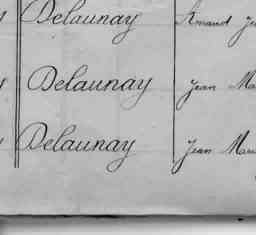 Delaunay Amand
Delaunay Jean
Delaunay Jean